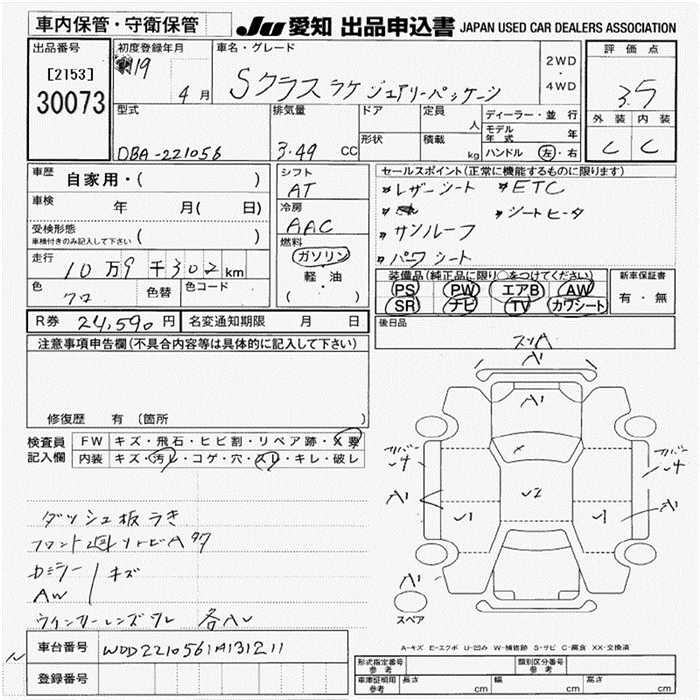 車内保管・守衛保管
JU 愛知 出品申込書 JAPAN USED CAR DEALERS ASSOCIATION
出品番号
[2153]
30073
初度登録年月
19
4月
車名・グレード
Sクラス ラグジュアリーパッケージ
2WD
・
4WD
評価点
3.5
外装 内装
C C
型式
DBA-221056
排気量
3.49 CC
ドア
形状
定員
人
積載
kg
ディーラー・並行
モデル年式 年
ハンドル 左・右
車歴
自家用・( )
車検
年 月( 日)
受検形態
車検付きのみ記入して下さい ( )
走行
10万9千302km
色
クロ
色替
色コード
シフト
AT
冷房
AAC
燃料
ガソリン
軽・油
( ・ )
セールスポイント(正常に機能するものに限ります)
レザーシート ETC
シートヒータ
サンルーフ
パワーシート
装備品(純正品に限り○をつけてください)
PS PW エアB AW
SR ナビ TV カワシート
新車保証書
有・無
後日品
R券 24,590円
名変通知期限 月 日
注意事項申告欄(不具合内容等は具体的に記入して下さい)
修復歴 有 (箇所 )
検査員記入欄
FW キズ・飛石・ヒビ割・リペア跡・X要
内装 キズ・汚レ・コゲ・穴・スレ・キレ・破レ
ダッシュ板うき
カミラー
AW
キズ
ウインカーレンズワレ 各AU
車台番号 WDD2210561A131211
登録番号
A1
A1
A1
A1
A1
U2
スペア
A-キズ E-エクボ U-凹み W-補修跡 S-サビ C-腐食 XX-交換済
形式指定番号
参考
類別区分番号
参考
車庫証明用
参考
長さ cm
幅 cm
高さ cm